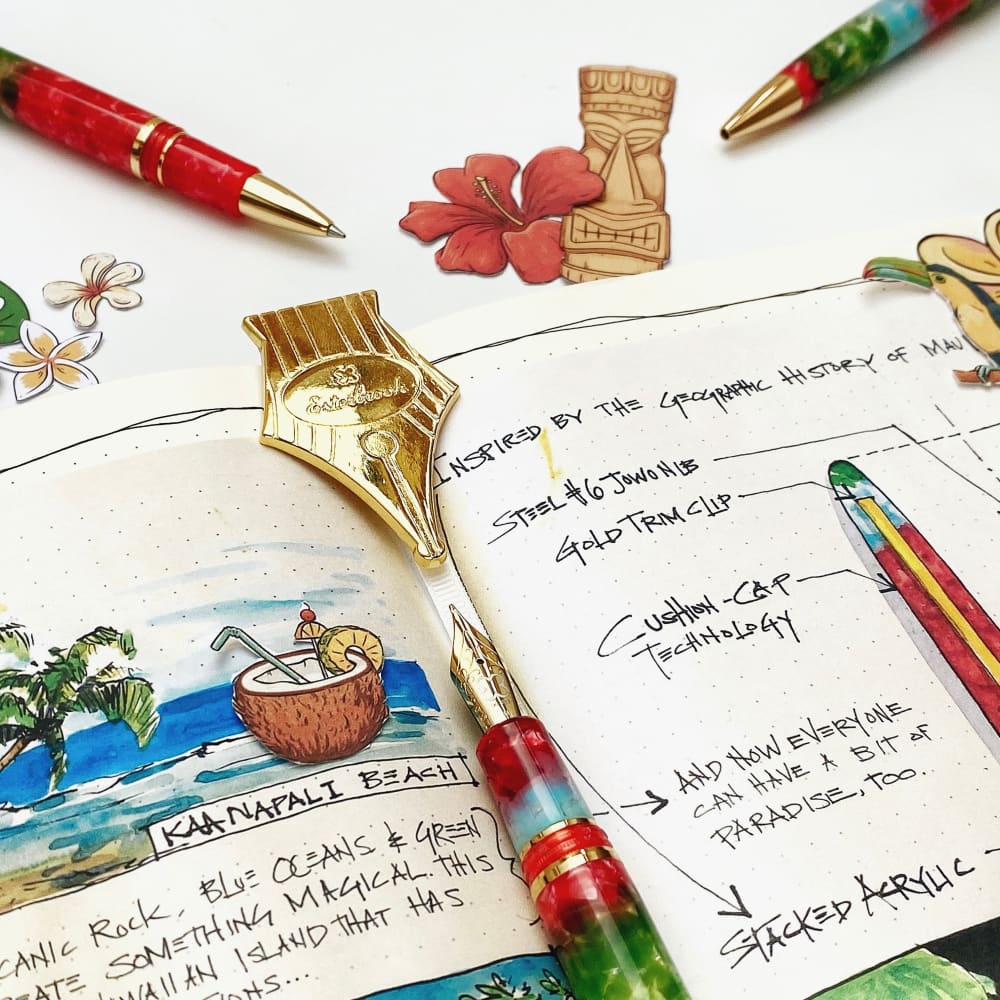 Esterbrook
KAANAPALI BEACH
CANIC ROCK, BLUE OCEANS & GREEN
EATE SOMETHING MAGICAL. THIS
WAIIAN ISLAND THAT HAS
IONS...
INSPIRED BY THE GEOGRAPHIC HISTORY OF MAUI
STEEL #6 JOWO NIB
GOLD TRIM CLIP
CUSHION-CAP
TECHNOLOGY
AND NOW EVERYONE
CAN HAVE A BIT OF
PARADISE, TOO.
STACKED ACRYLIC